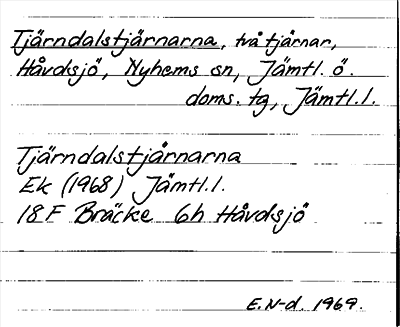 Tjärndalstjärnarna, två tjärnar,
Håvdsjö, Nyhems sn, Jämtl. ö.
doms. tg, Jämtl.l.
Tjärndalstjärnarna
Ek (1968) Jämtl.l.
18F Bräcke 6h Håvdsjö
E.N-d. 1969.